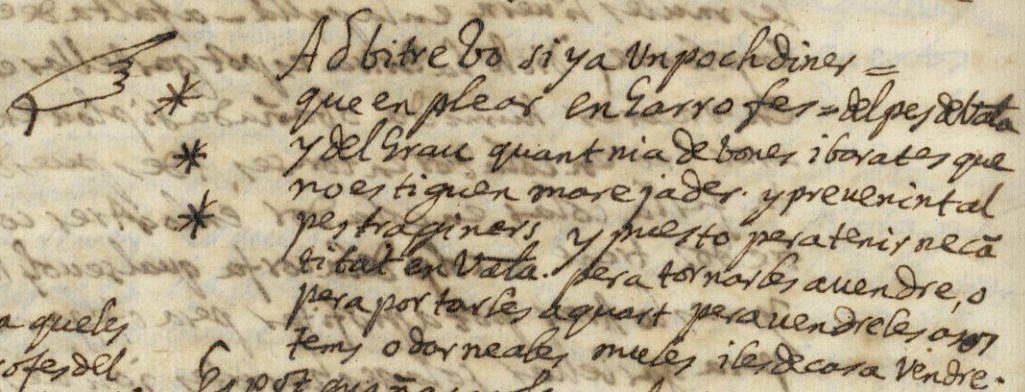 Adbitre bo si ya un poch diner =
que enplear en Garrofes = del pes de Vala
y del Grau quant nia de bones i barates que
no estiguen marejades. y prevenint al
pes traginers y puesto pera tenir ne cā
titat en Vala. pera tornarles a vendre, o
pera portarles a quart pera vendreles a
tems o dar ne a les mules i les de casa vendre.
a queles